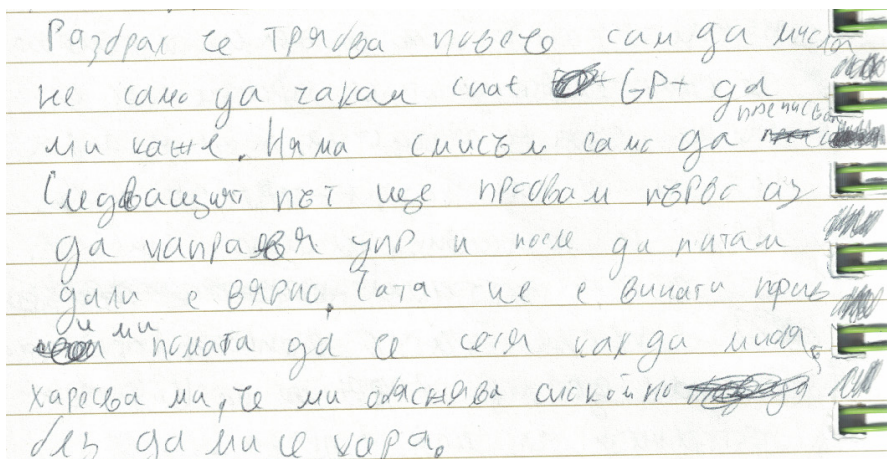 Разбрах че трябва повече сам да мисля
не само да чакам chat GPt да
ми каже. Няма смисъл само да преписвам
Следващият път ще пробвам първо аз
да направя упр и после да питам
дали е вярно, Чата не е винаги прав
и ми помага да се сетя как да мисля
харесва ми, че ми обяснява спокойно
без да ми се кара.